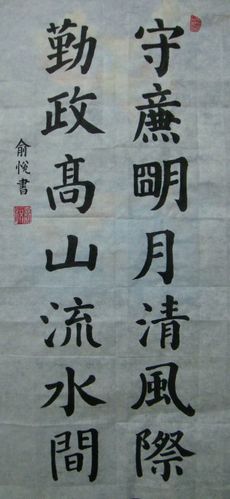 守廉明月清風際
勤政髙山流水間
俞悅書